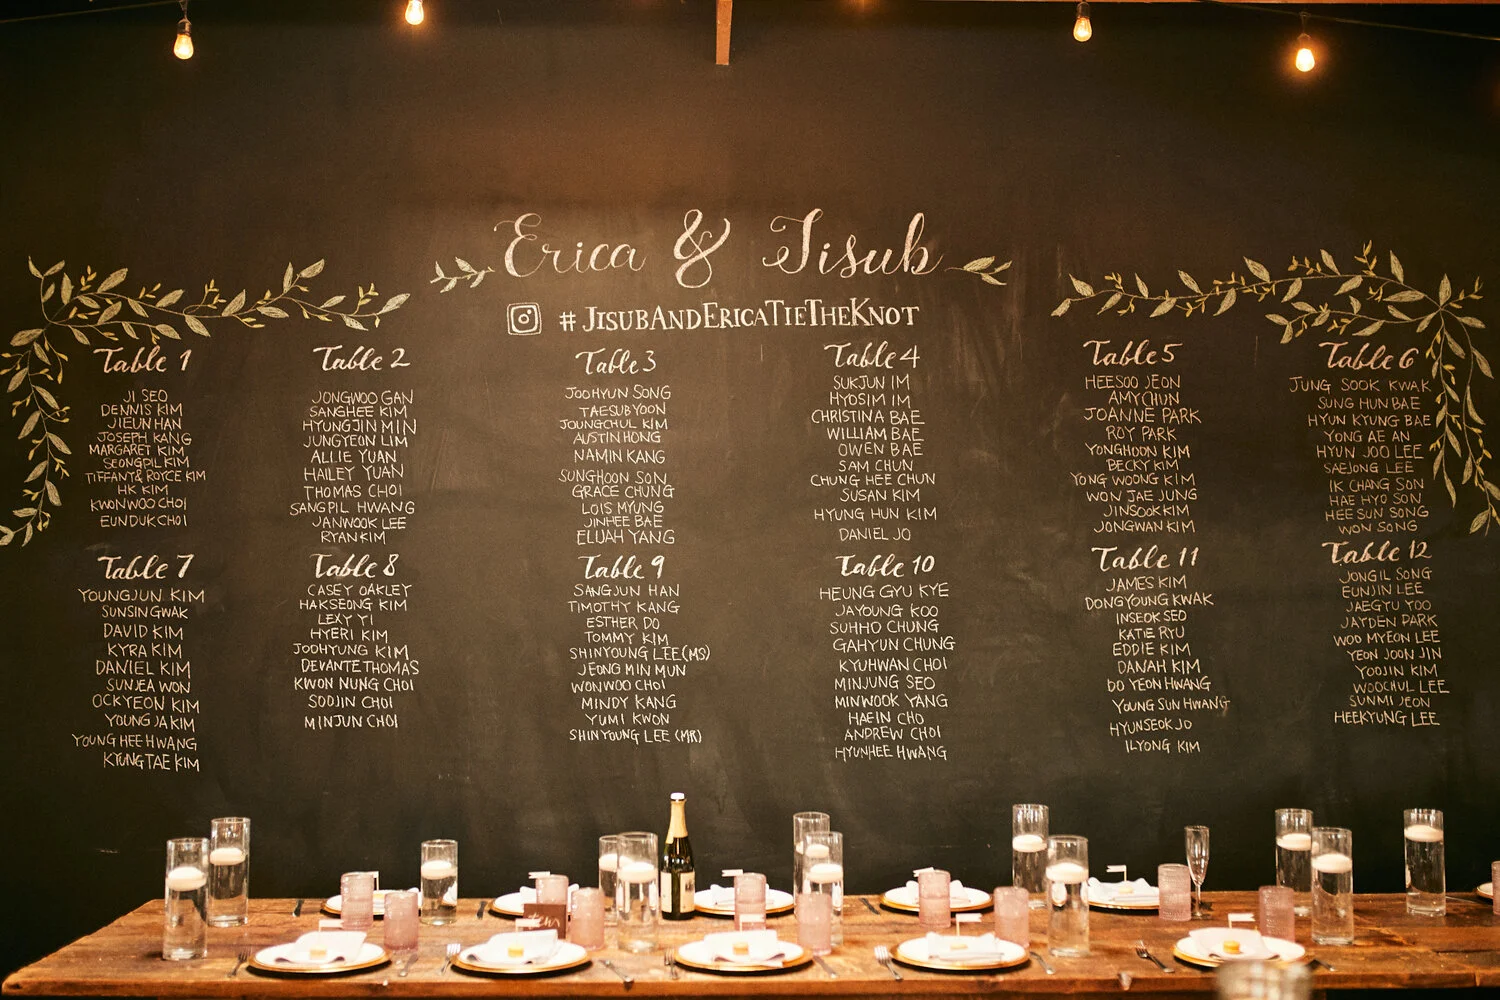 Erica & Jisub
#JISUBANDERICATIETHEKNOT
Table 1
JI SEO
DENNIS KIM
JIEUN HAN
JOSEPH KANG
MARGARET KIM
SEONGPIL KIM
TIFFANY & ROYCE KIM
HK KIM
KWONWOO CHOI
EUNDUK CHOI
Table 2
JONGWOO GAN
SANGHEE KIM
HYUNGJIN MIN
JUNGYEON LIM
ALLIE YUAN
HAILEY YUAN
THOMAS CHOI
SANGPIL HWANG
JANWOOK LEE
RYAN KIM
Table 3
JOOHYUN SONG
TAESUB YOON
JOUNGCHUL KIM
AUSTIN HONG
NAMIN KANG
SUNGHOON SON
GRACE CHUNG
LOIS MYUNG
JINHEE BAE
ELIJAH YANG
Table 4
SUKJUN IM
HYOSIM IM
CHRISTINA BAE
WILLIAM BAE
OWEN BAE
SAM CHUN
CHUNG HEE CHUN
SUSAN KIM
HYUNG HUN KIM
DANIEL JO
Table 5
HEESOO JEON
AMY CHUN
JOANNE PARK
ROY PARK
YONGHOON KIM
BECKY KIM
YONG WOONG KIM
WON JAE JUNG
JINSOOK KIM
JONGWAN KIM
Table 6
JUNG SOOK KWAK
SUNG HUN BAE
HYUN KYUNG BAE
YONG AE AN
HYUN JOO LEE
SAEJONG LEE
IK CHANG SON
HAE HYO SON
HEE SUN SONG
WON SONG
Table 7
YOUNGJUN KIM
SUNSIN GWAK
DAVID KIM
KYRA KIM
DANIEL KIM
SUNJEA WON
OCKYEON KIM
YOUNG JA KIM
YOUNG HEE HWANG
KYUNGTAE KIM
Table 8
CASEY OAKLEY
HAKSEONG KIM
LEXY YI
HYERI KIM
JOOHYUNG KIM
DEVANTE THOMAS
KWON NUNG CHOI
SOOJIN CHOI
MINJUN CHOI
Table 9
SANGJUN HAN
TIMOTHY KANG
ESTHER DO
TOMMY KIM
SHINYOUNG LEE (MS)
JEONG MIN MUN
WONWOO CHOI
MINDY KANG
YUMI KWON
SHIN YOUNG LEE (MR)
Table 10
HEUNG GYU KYE
JAYOUNG KOO
SUHHO CHUNG
GAHYUN CHUNG
KYUHWAN CHOI
MINJUNG SEO
MINWOOK YANG
HAEIN CHO
ANDREW CHOI
HYUNHEE HWANG
Table 11
JAMES KIM
DONGYOUNG KWAK
INSEOK SEO
KATIE RYU
EDDIE KIM
DANAH KIM
DO YEON HWANG
YOUNG SUN HWANG
HYUNSEOK JO
ILYONG KIM
Table 12
JONGIL SONG
EUNJIN LEE
JAEGYU YOO
JAYDEN PARK
WOO MYEON LEE
YEON JOON JIN
YOOJIN KIM
WOOCHUL LEE
SUNMI JEON
HEEKYUNG LEE